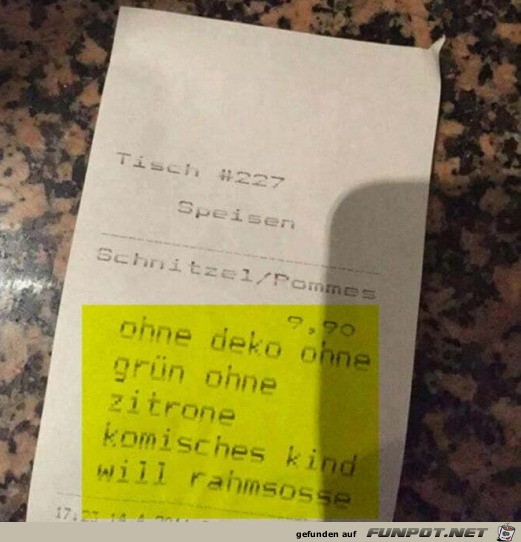 Tisch #227
Speisen
Schnitzel/Pommes
9,90
ohne deko ohne
grün ohne
zitrone
komisches kind
will rahmsosse
gefunden auf FUNPOT.NET